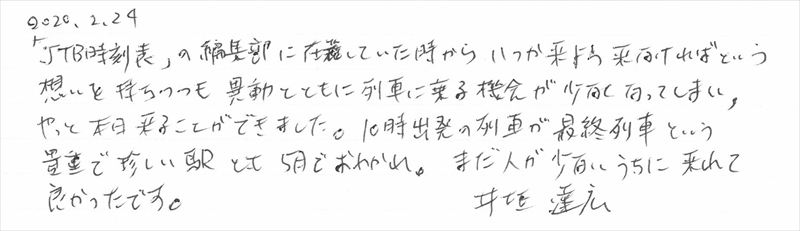 2020.2.24
「JTB時刻表」の編集部に在籍していた時から いつか来よう 来なければという
想いを持ちつつも 異動とともに列車に乗る機会が少なくなってしまい、
やっと本日来ることができました。10時出発の列車が最終列車という
貴重で珍しい駅とも 5月でおわかれ。 まだ人が少ないうちに来れて
良かったです。 井垣 達広